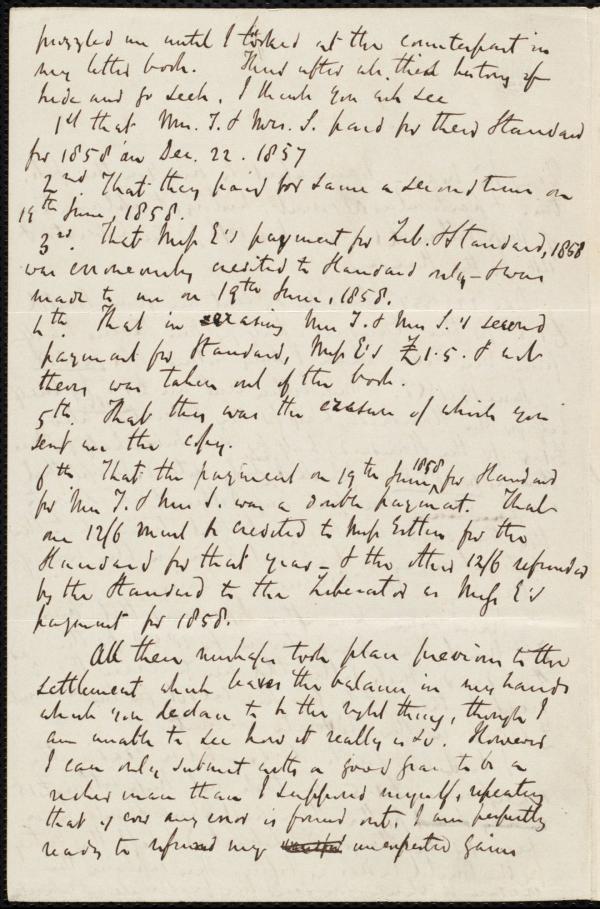 puzzled me until I looked at the counterpart in
my letter book. Thus after all this history of
hide and go seek, I think you will see
1st that Mr. J. & Mrs. S. paid for their Standard
for 1858 on Dec. 22. 1857
2nd. That they paid for same a second time on
19th June, 1858.
3rd. That Miss E's payment for Lib. & Standard, 1858
was erroneously credited to Standard only – & was
made to me on 19th June, 1858.
4th. That in erasing Mr J. & Mrs S.'s second
payment for Standard, Miss E's £1.5. &
theirs was taken out of the book.
5th. That this was the erasure of which you
sent me the copy.
6th. That the payment on 19th June, 1858 for Standard
for Mr J. & Mrs S. was a double payment. That
one 12/6 must be credited to Miss for the
Standard for that year – & the other 12/6 refunded
by the Standard to the Liberator as Miss E's
payment for 1858.
All these mishaps took place previous to the
settlement which leaves the balance in my hands
which you declare to be the right thing, though I
am unable to see how it really is so. However
I can only submit with a good grace to be a
richer man than I supposed myself, repeating
that if ever any error is found out, I am perfectly
ready to refund my unexpected gains